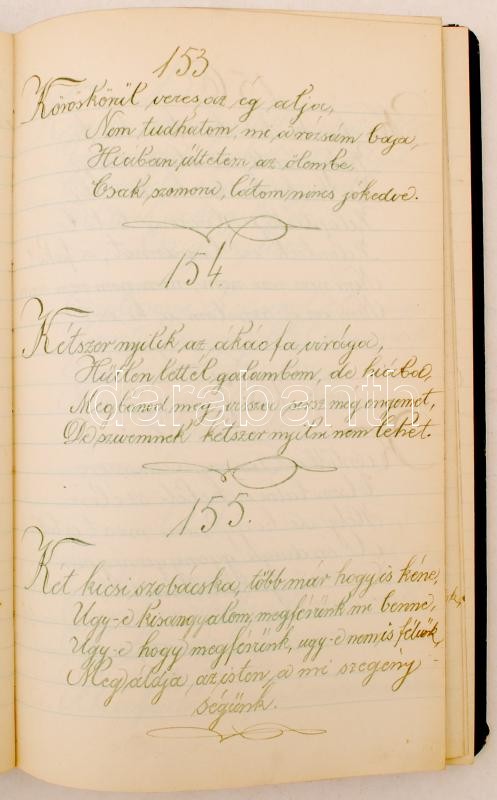 153
Köröskörül veres az ég alja,
Nem tudhatom, mi a rózsám baja,
Hiában ültetem az ölembe,
Csak szomorú, látom, nincs jókedve.
154.
Kétszer nyílik az ákác fa virága,
Hűtlen lettél galambom, de hiába,
Megbánod még, vissza sírsz még engemet,
De szivemnek kétszer nyilni nem lehet.
155.
Két kicsi szobácska, több már hogy is kéne,
Ugy-e kisangyalom, megférünk mi benne,
Ugy-e hogy megférünk, ugy-e nem is félünk,
Megáldja az isten a mi szegény-
ségünk.
darabanth